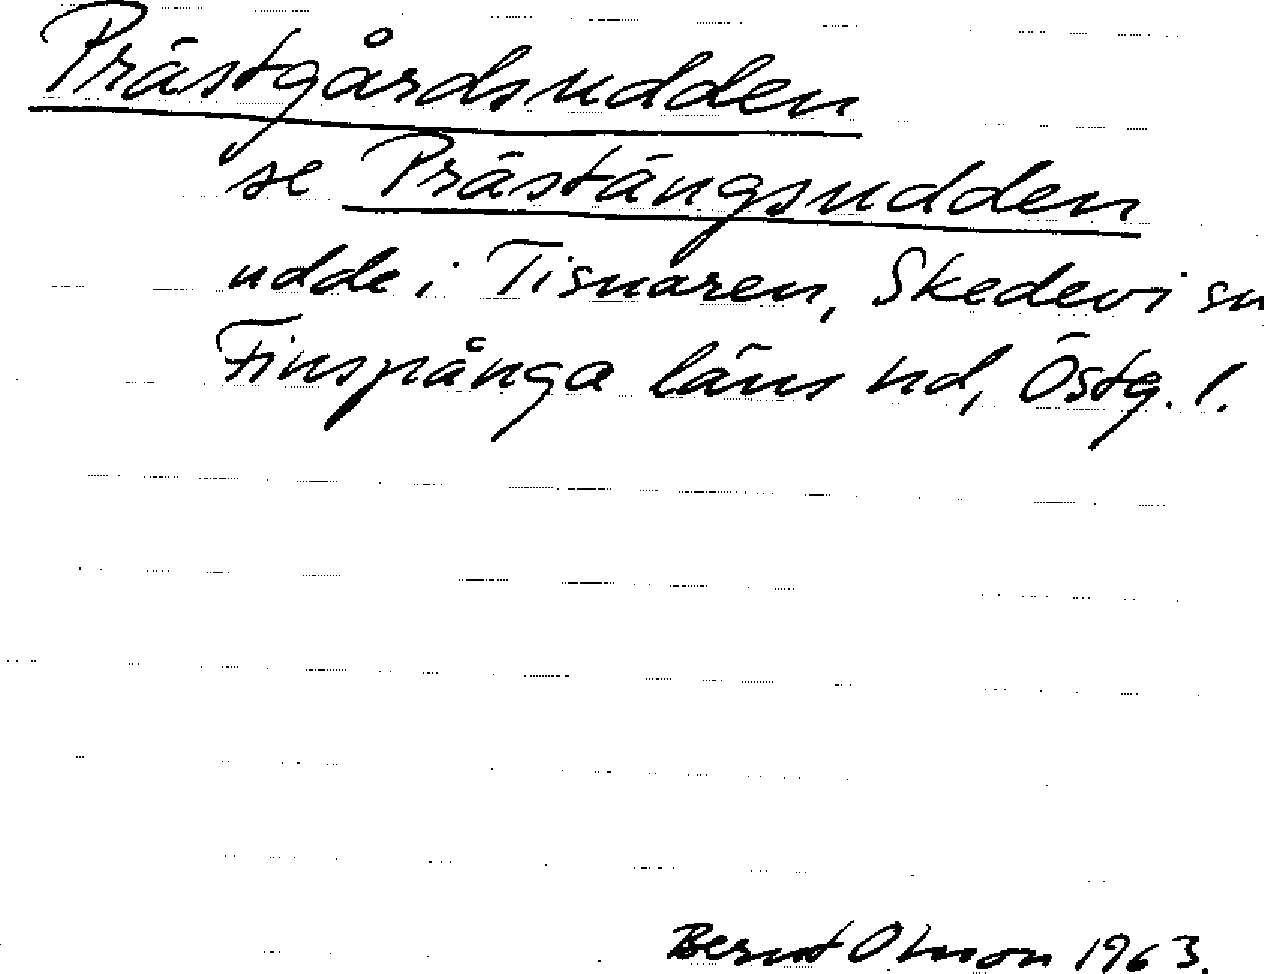 Prästgårdsudden
se Prästängsudden
udde i Tisnaren, Skedevi sn
Finspånga läns hd, Östg. l.
Bernt Olsson 1963.